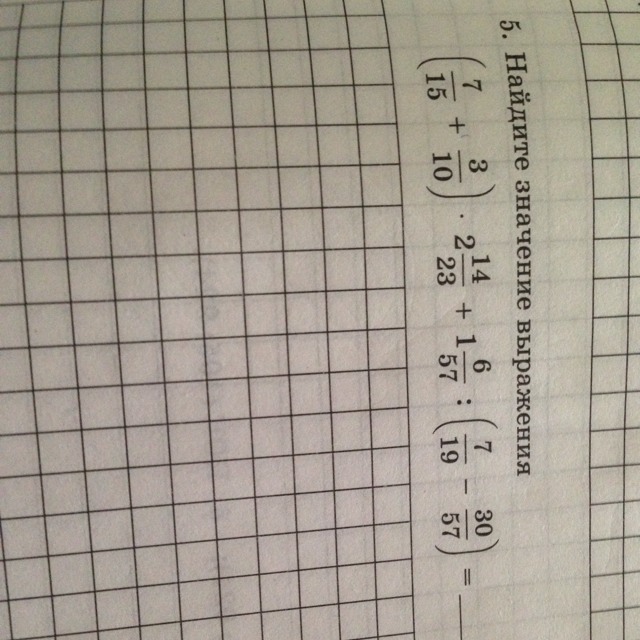 5. Найдите значение выражения
(7/15 + 3/10) · 2 14/23 + 1 6/57 : (7/19 − 30/57) = ___